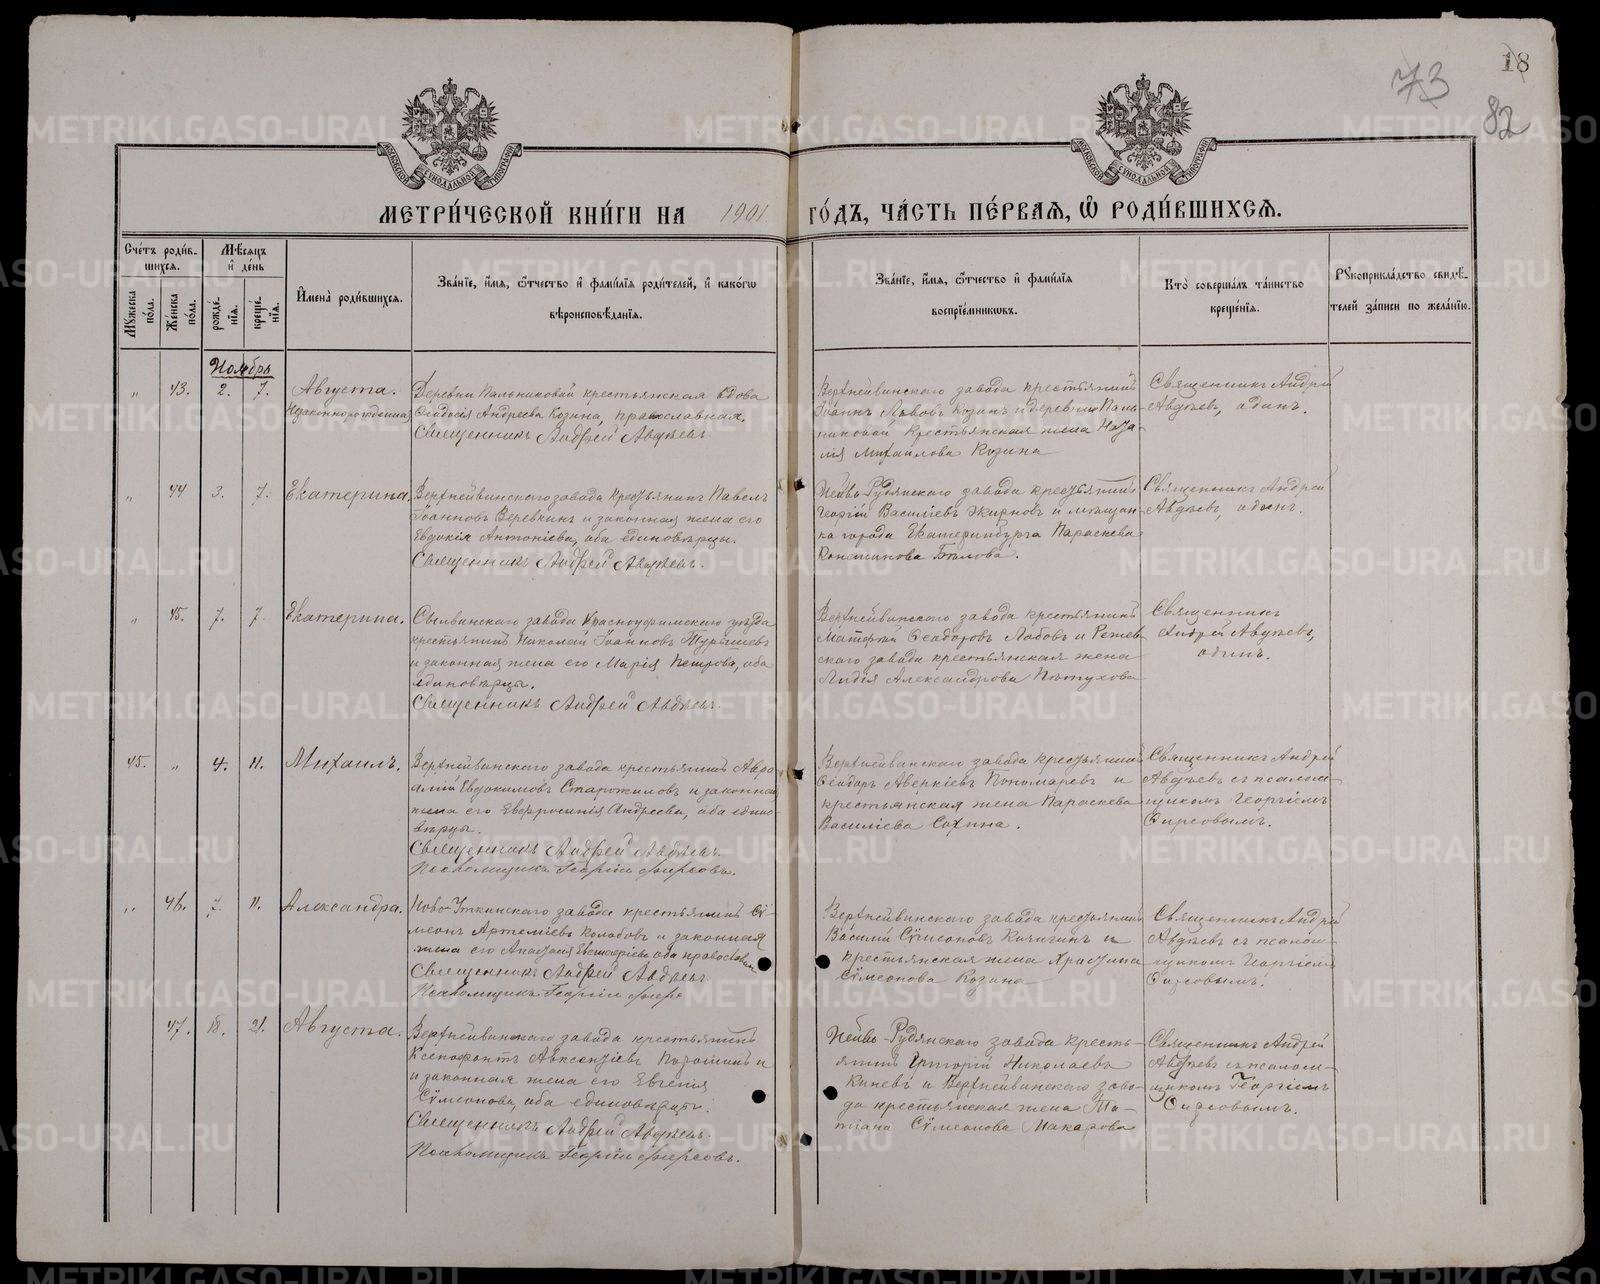 18
73
82
МОСКОВСКОЙ СѴНОДАЛЬНОЙ ТИПОГРАФІИ
МОСКОВСКОЙ СѴНОДАЛЬНОЙ ТИПОГРАФІИ
МЕТРИ́ЧЕСКОЙ КНИ́ГИ НА 1901 ГО́ДЪ, ЧА́СТЬ ПЕ́РВАѦ, Ѡ҆ РОДИ́ВШИХСѦ.
Сче́тъ роди́в-
шихсѧ.
Мѣ́сѧцъ
и҆ де́нь
Мꙋ́жеска по́ла.
Же́нска по́ла.
рожде́-нїѧ.
креще́-нїѧ.
И҆мена̀ роди́вшихсѧ.
Зва́нїе, и҆́мѧ, ѻ҆́тчество и҆ фами́лїѧ роди́телей, и҆ како́гѡ
вѣроисповѣ́данїѧ.
Зва́нїе, и҆́мѧ, ѻ҆́тчество и҆ фами́лїѧ
воспрїе́мникѡвъ.
Кто̀ соверша́лъ та́инство
креще́нїѧ.
Рꙋкоприкла́дство свидѣ́-
телей за́писи по жела́нїю.
Ноябрь
„ 43. 2. 7. Августа.
Незаконнорожденная
Деревни Пальниковой крестьянская вдова
Ѳеодосія Андреева Козина, православная.
Священникъ Андрей Авдѣевъ
Верхнейвинскаго завода крестьянинъ
Іоаннъ Львовъ Козинъ и деревни Паль-
никовой крестьянская жена Ната-
лія Михаилова Козина
Священникъ Андрей
Авдѣевъ, одинъ.
„ 44 3. 7. Екатерина.
Верхнейвинскаго завода крестьянинъ Павелъ
Іоанновъ Веревкинъ и законная жена его
Евдокія Антоніева, оба единовѣрцы.
Священникъ Андрей Авдѣевъ.
Нейво-Рудянскаго завода крестьянинъ
Георгій Василіевъ Жирновъ и мѣщан-
ка города Екатеринбурга Параскева
Бѣлова.
Священникъ Андрей
Авдѣевъ, одинъ.
„ 45. 7. 7 Екатерина.
Сылвинскаго завода Красноуфимскаго уѣзда
крестьянинъ Николай Іоанновъ Турышевъ
и законная жена его Марія Петрова, оба
единовѣрцы.
Священникъ Андрей Авдѣевъ.
Верхнейвинскаго завода крестьянинъ
Матѳей Ѳеодоровъ Лобовъ и Режев-
скаго завода крестьянская жена
Лидія Александрова Пѣтухова
Священникъ
Андрей Авдѣевъ,
одинъ.
45. „ 4. 11. Михаилъ.
Верхнейвинскаго завода крестьянинъ Авра-
амій Евдокимовъ Старожиловъ и законная
жена его Евфросинія Андреева, оба едино-
вѣрцы.
Священникъ Андрей Авдѣевъ.
Псаломщикъ Георгій Фирсовъ.
Верхнейвинскаго завода крестьянинъ
Ѳеодоръ Аверкіевъ Пономаревъ и
крестьянская жена Параскева
Василіева Сохина.
Священникъ Андрей
Авдѣевъ съ псалом-
щикомъ Георгіемъ
Фирсовымъ.
„ 46. 7. 11. Александра.
Ново-Уткинскаго завода крестьянинъ Сѵ-
меонъ Артеміевъ Колобовъ и законная
жена его оба православн.
Священникъ Андрей Авдѣевъ.
Псаломщикъ Георгій Фирс
Верхнейвинскаго завода крестьянинъ
Василій Сѵмеоновъ Кичигинъ и
крестьянская жена Христина
Сѵмеонова Козина
Священникъ Андрей
Авдѣевъ съ псалом-
щикомъ Георгіемъ
Фирсовымъ.
47. 18. 21. Августа.
Верхнейвинскаго завода крестьянинъ
Ксенофонтъ Авксентіевъ Поташинъ и
и законная жена его Евгенія
Сѵмеонова, оба единовѣрцы.
Священникъ Андрей Авдѣевъ.
Псаломщикъ Георгій Фирсовъ.
Нейво-Рудянскаго завода кресть-
янинъ Григорій Николаевъ
Киневъ и Верхнейвинскаго заво-
да крестьянская жена Та-
тіана Сѵмеонова Макарова
Священникъ Андрей
Авдѣевъ съ псалом-
щикомъ Георгіемъ
Фирсовымъ.
METRIKI.GASO-URAL.RU